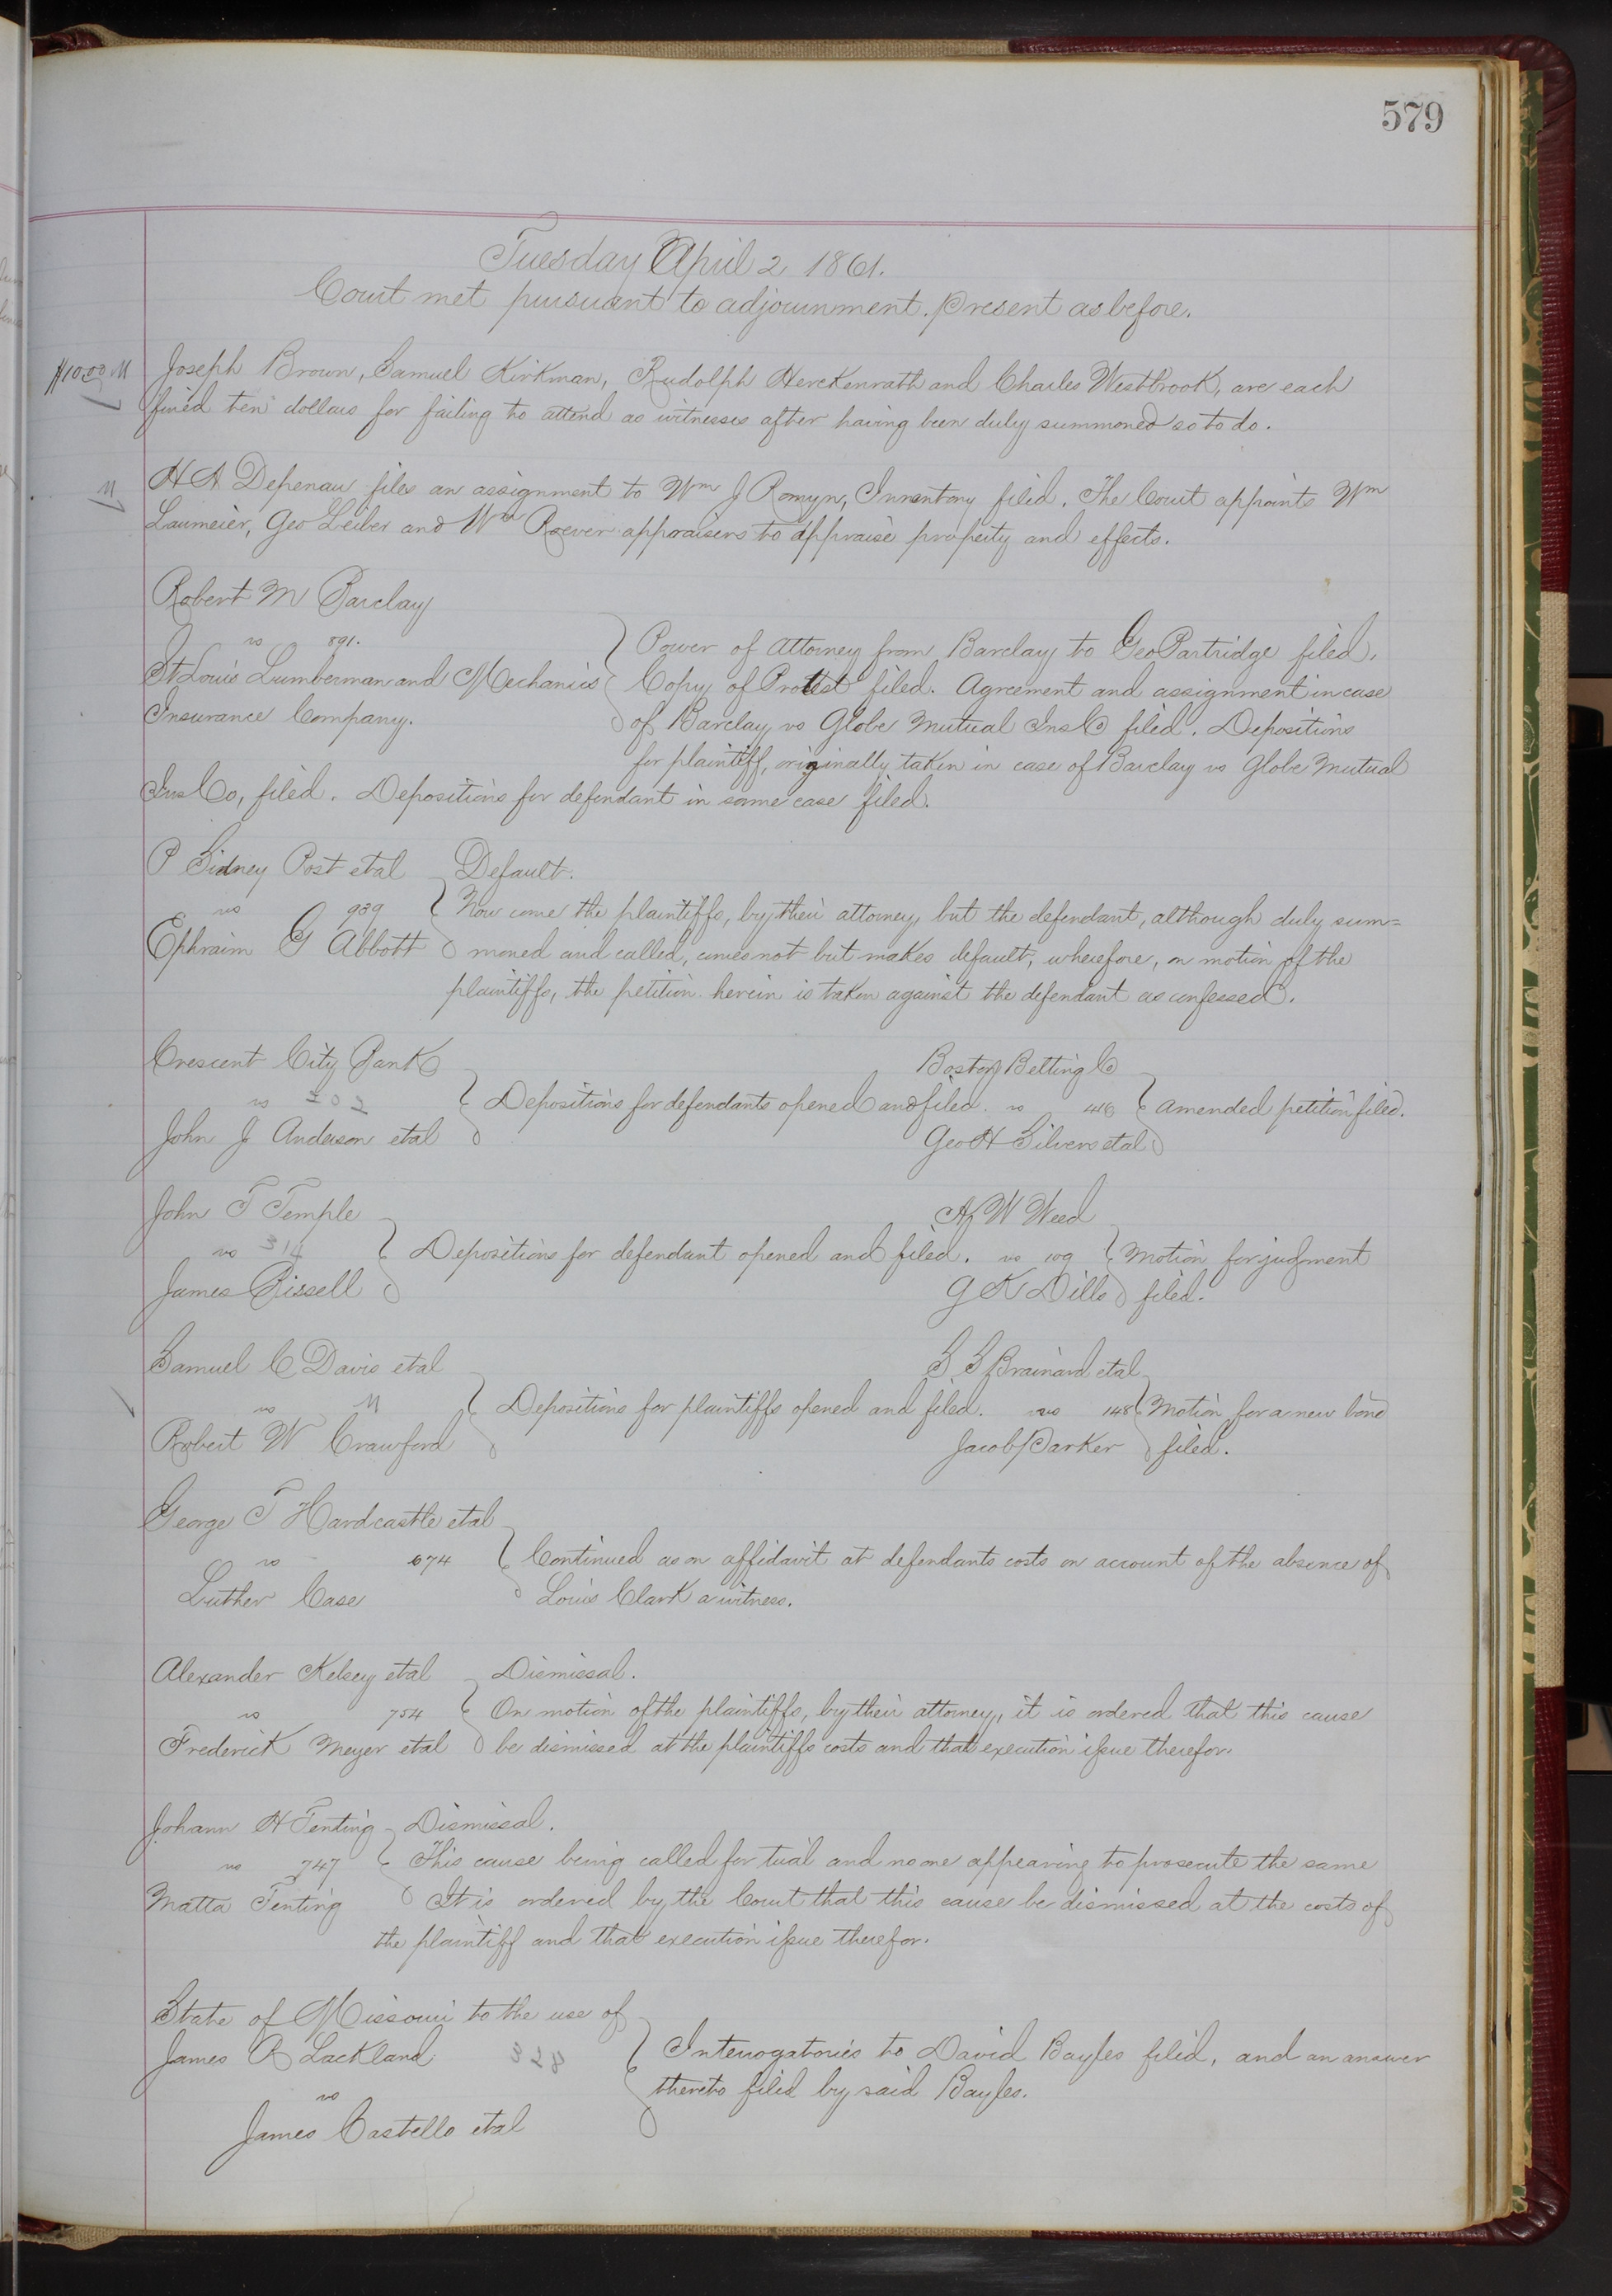 579
Tuesday April 2 1861.
Court met pursuant to adjournment. Present as before.
Joseph Brown, Samuel Kirkman, Rudolph Herckenrath and Charles Westbrook, are each
fined ten dollars for failing to attend as witnesses after having been duly summoned so to do.
H A Depenau files an assignment to Wm J Romyn, Inventory filed. The Court appoints Wm
Laumeier, Geo Leiber and Wm Roever appraisers to appraise property and effects.
Robert M Barclay
vs 891.
St Louis Lumberman and Mechanics
Insurance Company.
Power of Attorney from Barclay to Geo Partridge filed.
Copy of Protest filed. Agreement and assignment in case
of Barclay vs Globe Mutual Ins Co filed. Depositions
for plaintiff, originally taken in case of Barclay vs Globe Mutual
Ins Co, filed. Depositions for defendant in same case filed.
P Sidney Post etal
vs 989
Ephraim G Abbott
Default.
Now come the plaintiffs, by their attorney, but the defendant, although duly sum=
moned and called, comes not but makes default, wherefore, on motion of the
plaintiffs, the petition herein is taken against the defendant as confessed.
Crescent City Bank
vs 202
John J Anderson etal
Depositions for defendants opened and filed.
Boston Belting Co
vs 416
Geo H Silvers etal
Amended petition filed.
John T Temple
vs 314
James Rissell
Depositions for defendant opened and filed.
A W Weed
vs 109
G K Dills
Motion for judgment
filed.
Samuel C Davis etal
vs 11
Robert W Crawford
Depositions for plaintiffs opened and filed.
S S Brainard etal
vs 148
Jacob Parker
Motion for a new bond
filed.
George T Hardcastle etal
vs 674
Luther Case
Continued as on affidavit at defendants costs on account of the absence of
Louis Clark a witness.
Alexander Kelsey etal
vs 754
Frederick Meyer etal
Dismissal.
On motion of the plaintiffs, by their attorney, it is ordered that this cause
be dismissed at the plaintiffs costs and that execution issue therefor.
Johann H Tenting
vs 747
Matta Tenting
Dismissal.
This cause being called for trial and no one appearing to prosecute the same
It is ordered by the Court that this cause be dismissed at the costs of
the plaintiff and that execution issue therefor.
State of Missouri to the use of
James R Lackland 328
vs
James Castello etal
Interrogatories to David Bayles filed, and an answer
thereto filed by said Bayles.